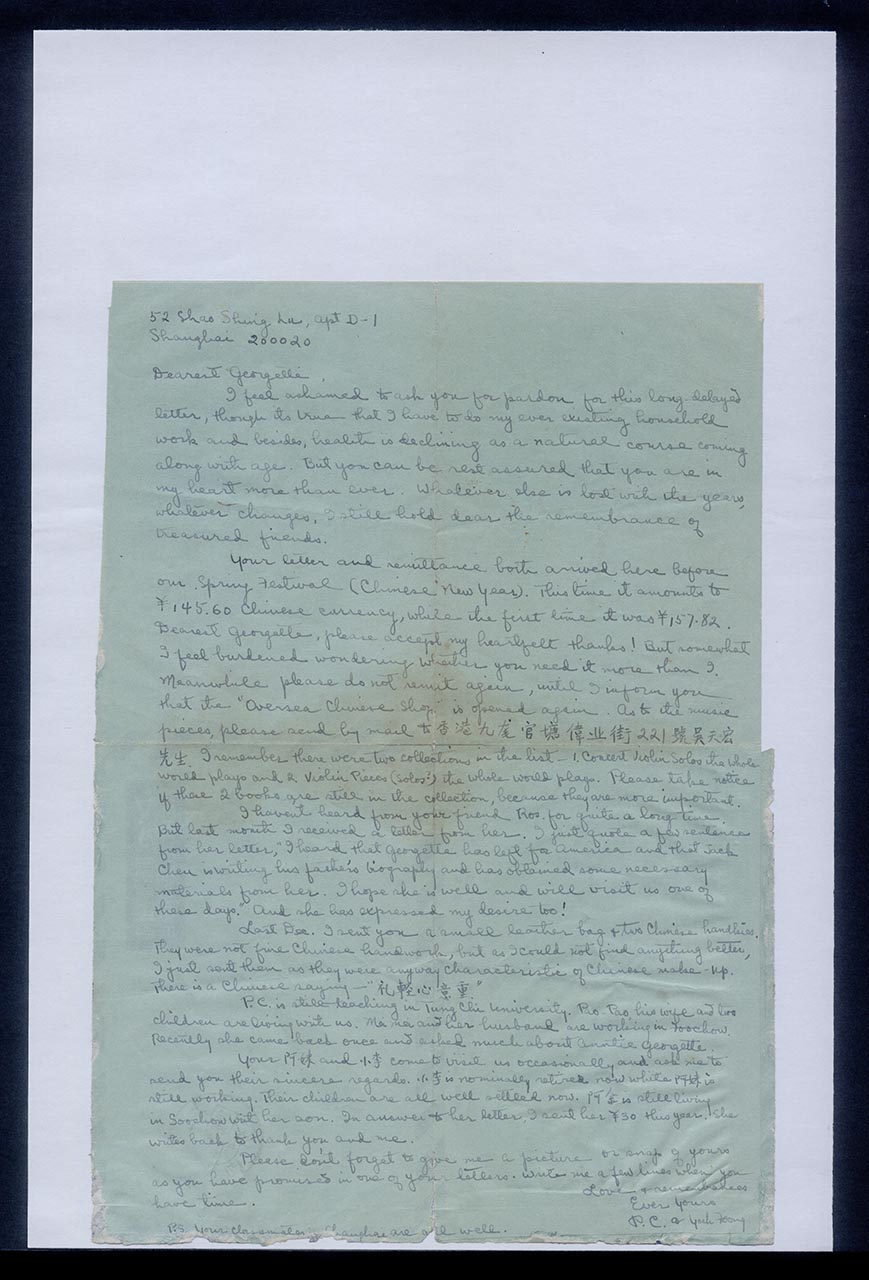 52 Shao Shing Lu, apt D-1
Shanghai 200020
Dearest Georgette,
I feel ashamed to ask you for pardon for this long delayed
letter, though its true that I have to do my ever existing household
work and besides, health is declining as a natural course coming
along with age. But you can be rest assured that you are in
my heart more than ever. Whatever else is lost with the years,
whatever changes, I still hold dear the remembrance of
treasured friends.
Your letter and remittance both arrived here before
our Spring Festival (Chinese New Year). This time it amounts to
¥145.60 Chinese currency, while the first time it was ¥157.82.
Dearest Georgette, please accept my heartfelt thanks! But somewhat
I feel burdened wondering whether you need it more than I.
Meanwhile please do not remit again, until I inform you
that the "Oversea Chinese Shop" is opened again. As to the music
pieces, please send by mail to 香港九龙官塘偉业街221號吴天宏
先生. I remember there were two collections in the list - 1. Concert Violin Solos the whole
world plays and 2. Violin Pieces (solos?) the whole world plays. Please take notice
if these 2 books are still in the collection, because they are more important.
I havent heard from your friend Ros. for quite a long time.
But last month I received a letter from her. I just quote a few sentence
from her letter, "I heard that Georgette has left for America and that Jack
Chen is writing his father's biography and has obtained some necessary
materials from her. I hope she is well and will visit us one of
these days." And she has expressed my desire too!
Last Dec. I sent you a small leather bag & two Chinese handkies.
They were not fine Chinese handwork, but as I could not find anything better,
I just sent them as they were anyway characteristic of Chinese make-up.
There is a Chinese saying — "礼輕心意重"
P.C. is still teaching in Tung Chi University. Pao Pao his wife and two
children are living with us. Ma mei and her husband are working in Foochow.
Recently she came back once and asked much about Auntie Georgette.
Your 阿妹 and 小李 come to visit us occasionally and ask me to
send you their sincere regards. 小李 is nominally retired now while 阿妹 is
still working. Their children are all well settled now. 阿金 is still living
in Soochow with her son. In answer to her letter, I sent her ¥30 this year. She
writes back to thank you and me.
Please don't forget to give me a picture or snap of yours
as you have promised in one of your letters. Write me a few lines when you
have time.
Love & remembrances
Ever Yours
P.C. &
P.S. Your classmates in Shanghai are all well.